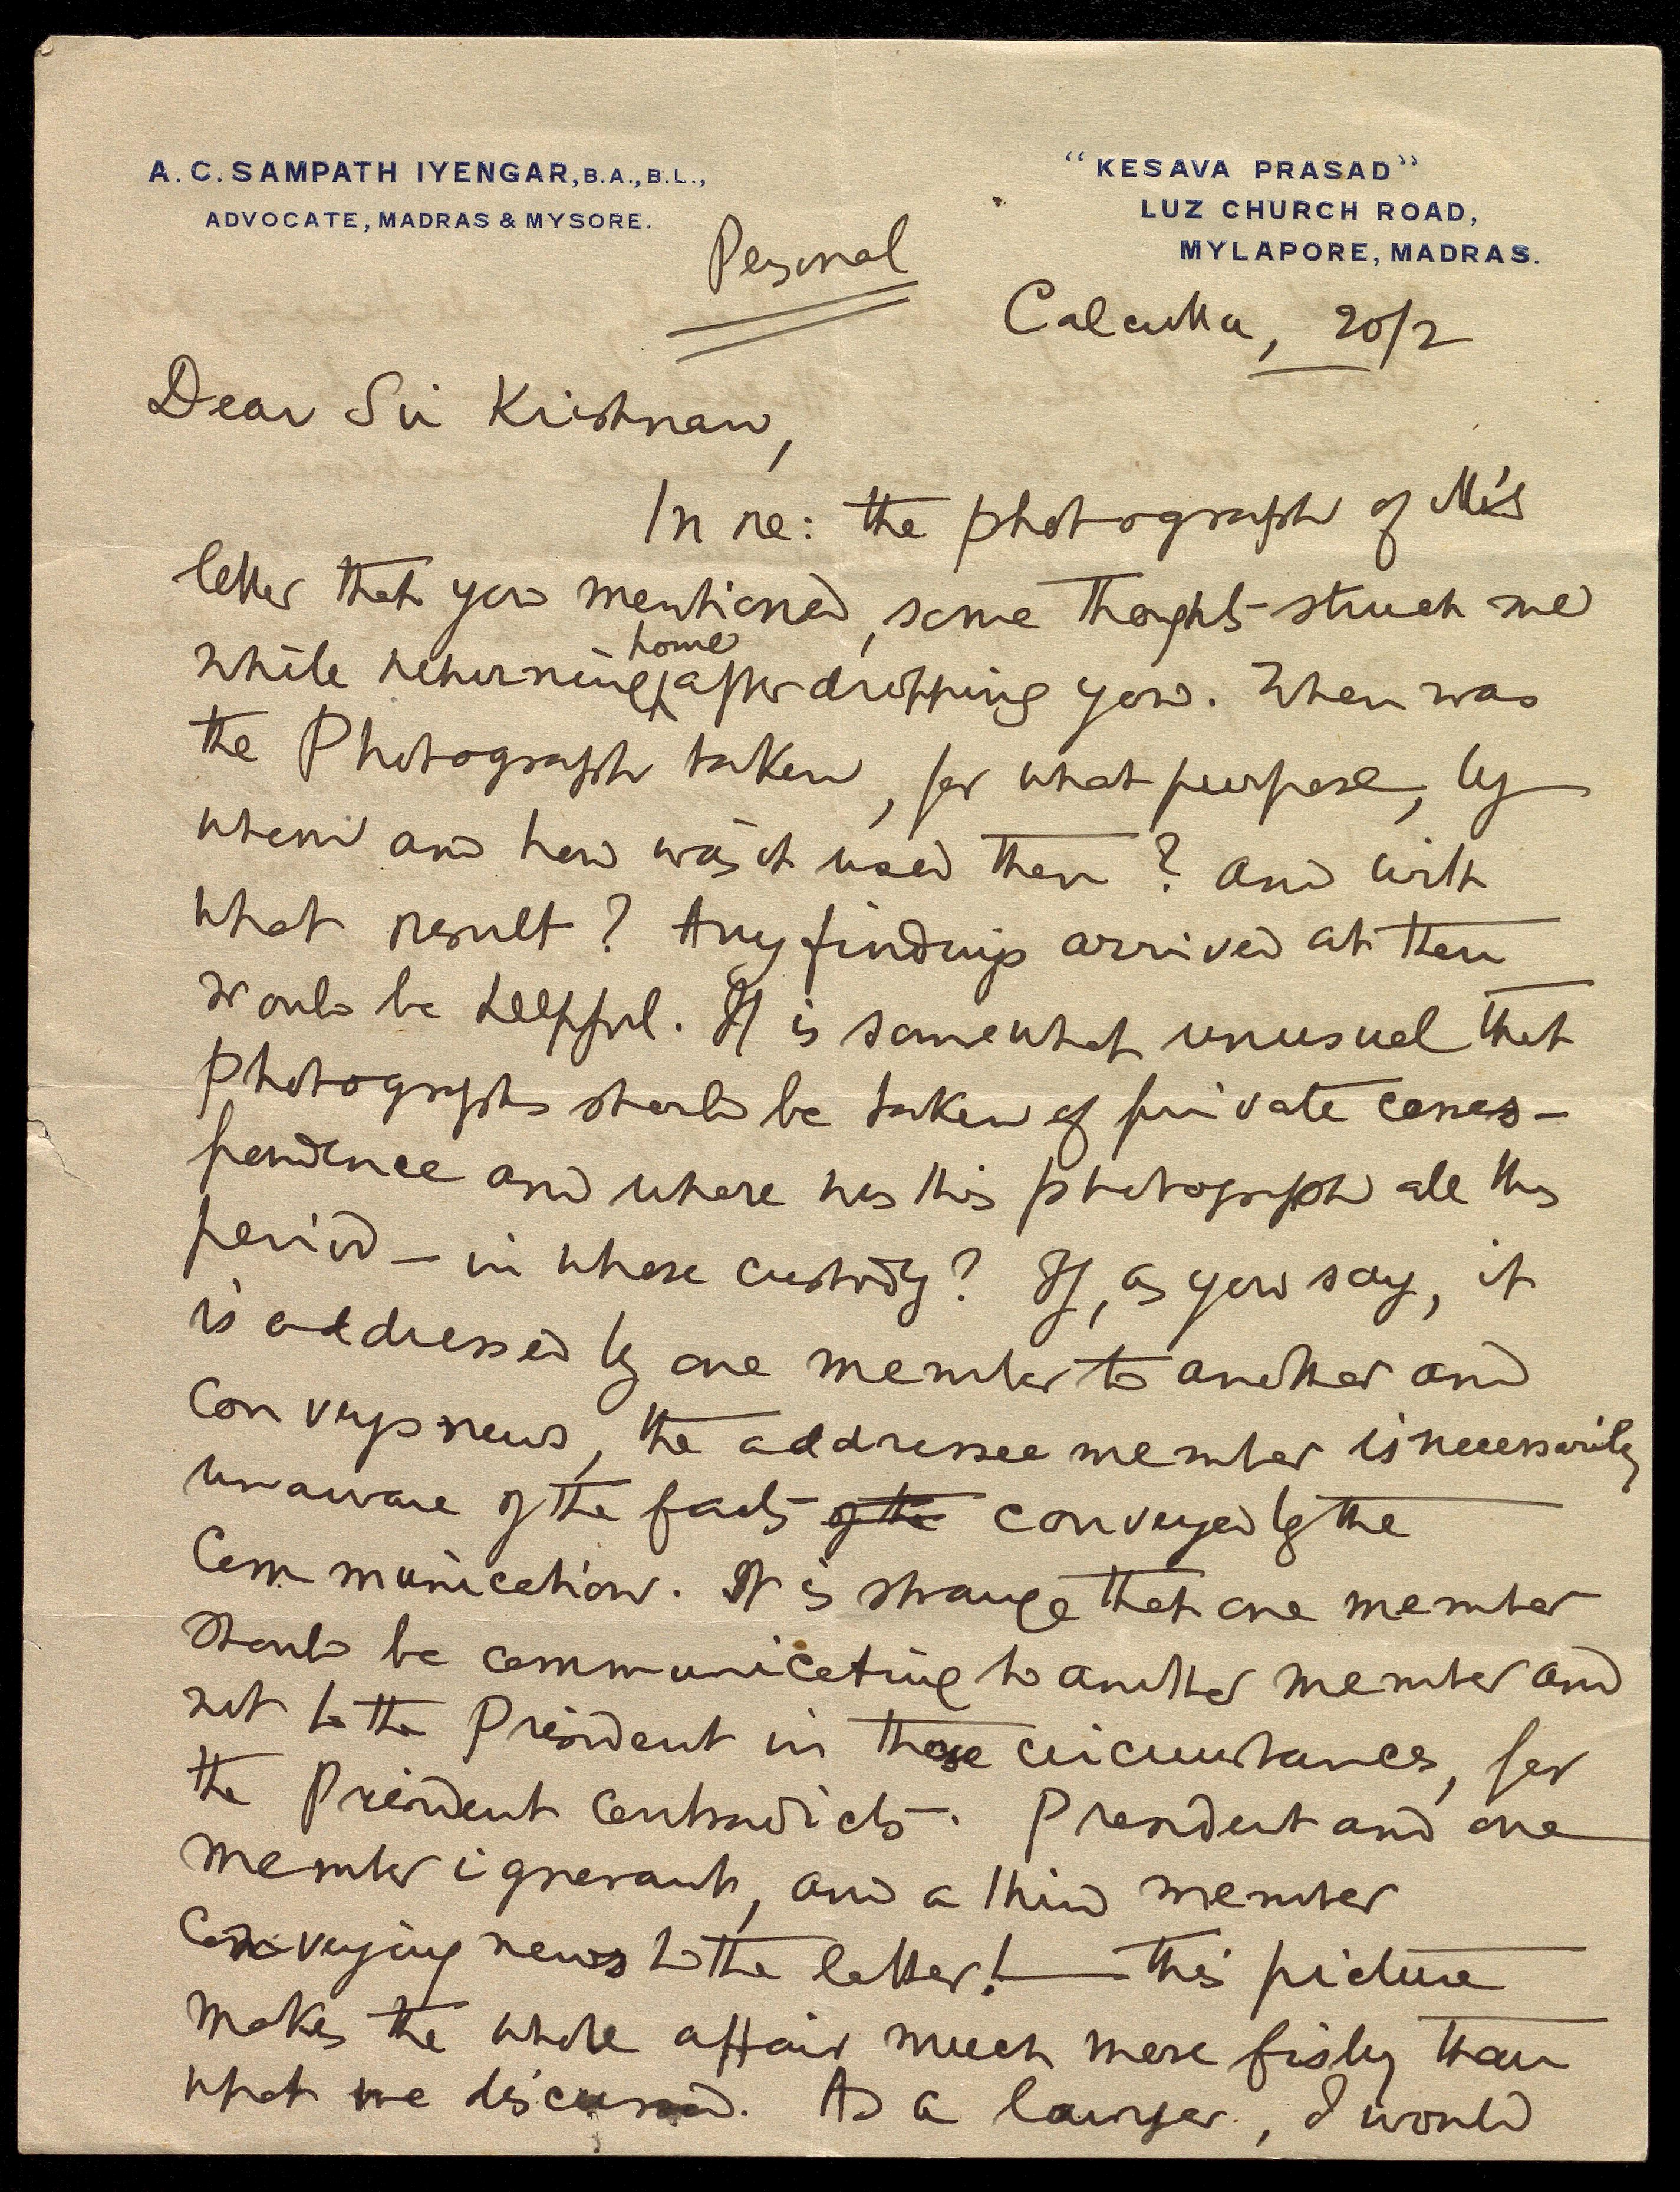 A. C. SAMPATH IYENGAR, B.A., B.L.,
ADVOCATE, MADRAS & MYSORE.
"KESAVA PRASAD"
LUZ CHURCH ROAD,
MYLAPORE, MADRAS.
Personal
Calcutta, 20/2
Dear Sir Krishnan,
In re: the photograph of
letter that you mentioned, some thoughts struck me
while returning home after dropping you. When was
the Photograph taken, for what purpose, by
whom and how was it used then? And with
what result? Any findings arrived at then
would be helpful. It is somewhat unusual that
photographs should be taken of private corres-
pondence and where was this photograph all this
period – in whose custody? If, as you say, it
is addressed by one member to another and
conveys news, the addressee member is necessarily
unaware of the facts of the conveyed by the
Communication. It is strange that one member
should be communicating to another member and
not to the President in those circumstances, for
the President contradicts. President and one
member ignorant, and a third member
conveying news to the latter! — this picture
makes the whole affair much more fishy than
what we discussed. As a lawyer, I would